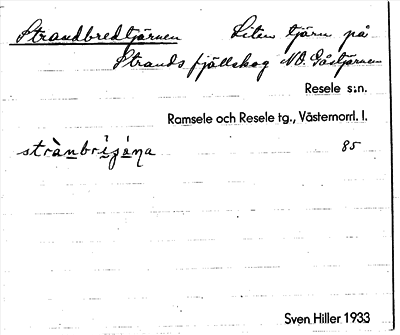 Strandbredtjärnen Liten tjärn på
Strands fjällskog NO. Gåstjärnen
Resele s:n.
Ramsele och Resele tg., Västernorrl. l.
85
Sven Hiller 1933